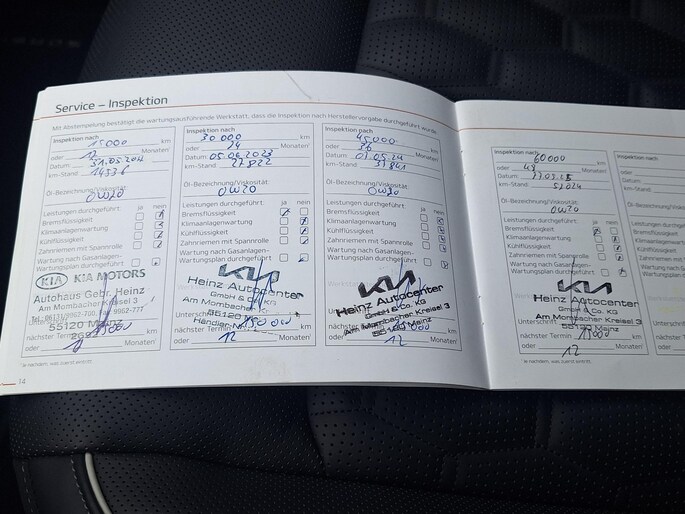 Service – Inspektion
Mit Abstempelung bestätigt die wartungsausführende Werkstatt, dass die Inspektion nach Herstellervorgabe durchgeführt wurde.
Inspektion nach
15000 km
oder 12 Monaten
Datum: 31.05.
km-Stand:
Öl-Bezeichnung/Viskosität:
0W20
Leistungen durchgeführt: ja nein
Bremsflüssigkeit
Klimaanlagenwartung
Kühlflüssigkeit
Zahnriemen mit Spannrolle
Wartung nach Gasanlagen-
Wartungsplan durchgeführt
KIA KIA MOTORS
Autohaus Gebr. Heinz
Am Mombacher Kreisel 3
55120 Mainz
nächster Termin 15000 km
oder Monaten
Inspektion nach
30000 km
oder 24 Monaten
Datum: 05.06.2023
km-Stand:
Öl-Bezeichnung/Viskosität:
0W20
Leistungen durchgeführt: ja nein
Bremsflüssigkeit
Klimaanlagenwartung
Kühlflüssigkeit
Zahnriemen mit Spannrolle
Wartung nach Gasanlagen-
Wartungsplan durchgeführt
KIA
Heinz Autocenter
GmbH & Co. KG
Am Mombacher
55120
nächster Termin km
oder 12 Monaten
Inspektion nach
45000 km
oder 36 Monaten
Datum: 05.24
km-Stand:
Öl-Bezeichnung/Viskosität:
0W20
Leistungen durchgeführt: ja nein
Bremsflüssigkeit
Klimaanlagenwartung
Kühlflüssigkeit
Zahnriemen mit Spannrolle
Wartung nach Gasanlagen-
Wartungsplan durchgeführt
KIA
Heinz Autocenter
GmbH & Co. KG
Am Mombacher Kreisel 3
55120 Mainz
nächster Termin km
oder 12 Monaten
*Je nachdem, was zuerst eintritt.
14
Inspektion nach
60000 km
oder Monaten
Datum:
km-Stand:
Öl-Bezeichnung/Viskosität:
0W20
Leistungen durchgeführt: ja nein
Bremsflüssigkeit
Klimaanlagenwartung
Kühlflüssigkeit
Zahnriemen mit Spannrolle
Wartung nach Gasanlagen-
Wartungsplan durchgeführt
KIA
Heinz Autocenter
GmbH & Co. KG
Am Mombacher Kreisel 3
55120 Mainz
nächster Termin 15000 km
oder 12 Monaten
*Je nachdem, was zuerst eintritt.
Inspektion
oder
Datum:
km-Stand:
Öl-Bezeichnung
Leistungen
Bremsflüssigkeit
Klimaanlagen
Kühlflüssigkeit
Zahnriemen
Wartung nach
Wartungsplan
Unterschrift
nächster
oder